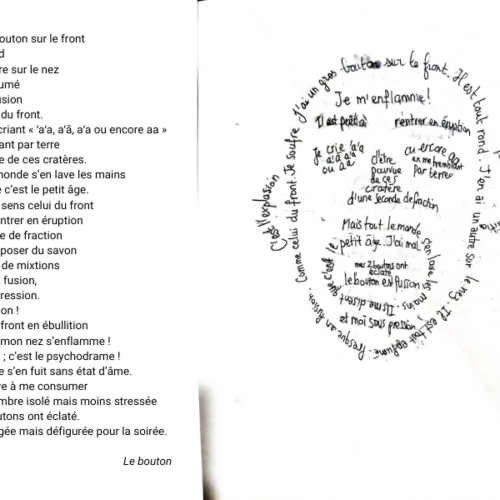 outon sur le front
d
re sur le nez
umé
usion
du front.
criant « 'a'a, a'ā, a'a ou encore aa »
ant par terre
e de ces cratères.
monde s'en lave les mains
e c'est le petit âge.
sens celui du front
ntrer en éruption
e de fraction
poser du savon
de mixtions
t fusion,
ression.
on !
front en ébullition
mon nez s'enflamme !
; c'est le psychodrame !
e s'en fuit sans état d'âme.
ve à me consumer
mbre isolé mais moins stressée
utons ont éclaté.
gée mais défigurée pour la soirée.
Le bouton
J'ai un gros bouton sur le front. Il est tout rond. J'en ai un autre sur le nez. Il est tout enflumé. Presque en fusion.
Comme celui du front. Je souffre
C'est l'explosion
Je m'enflamme!
Il est prêt à rentrer en éruption
Je crie 'a'a
a'ā a'a
ou a'a
d'être
pourvue
de ces
cratère
ou encore aa
en me trempant
par terre
d'une seconde de fraction
Mais tout le monde
s'en lave les mains. Ils me disent que c'est le
petit âge. J'ai mal
mes 2 boutons ont
éclaté
le bouton est fusion
et moi sous pression